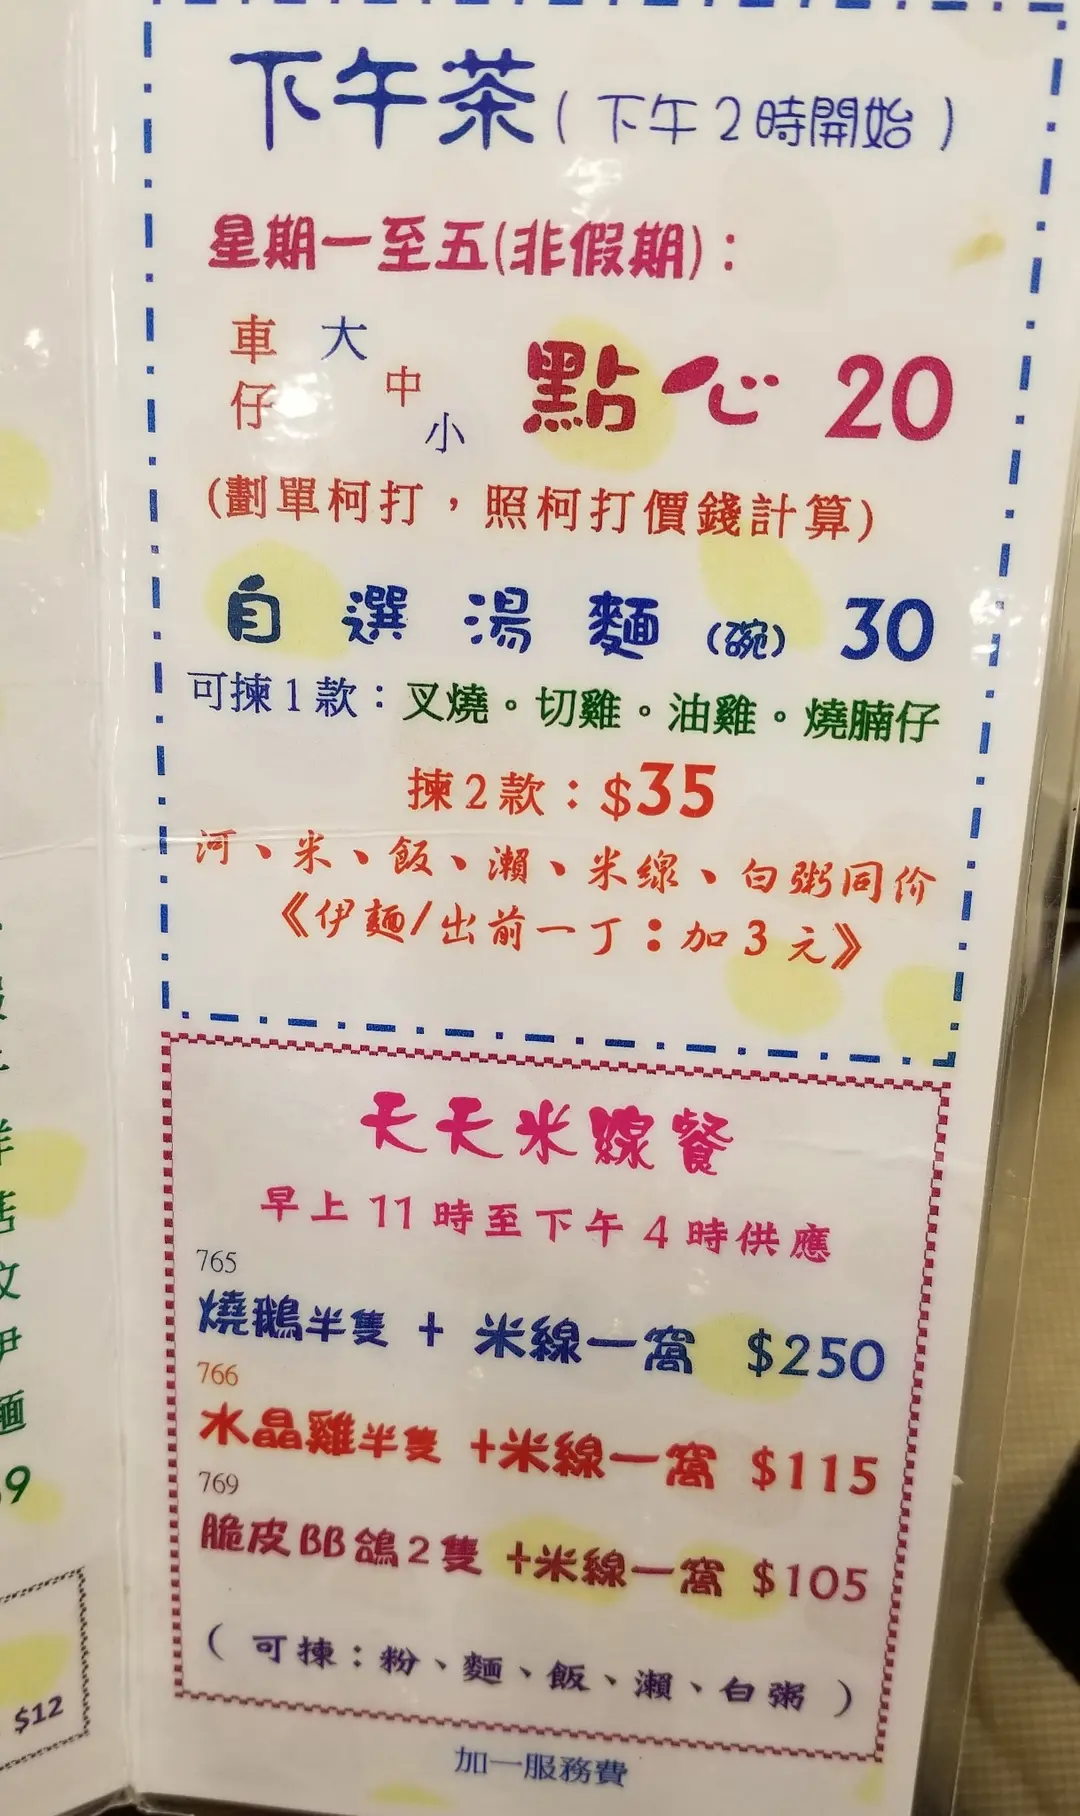 下午茶(下午2時開始)
星期一至五(非假期):
車仔 大 中 小 點心 20
(劃單柯打，照柯打價錢計算)
自選湯麵(碗) 30
可揀1款：叉燒。切雞。油雞。燒腩仔
揀2款：$35
河、米、飯、瀨、米線、白粥同价
《伊麵/出前一丁：加3元》
天天米線餐
早上11時至下午4時供應
765
燒鵝半隻 + 米線一窩 $250
766
水晶雞半隻 +米線一窩 $115
769
脆皮BB鴿2隻 +米線一窩 $105
(可揀：粉、麵、飯、瀨、白粥)
加一服務費
文
伊
麵
9
$12